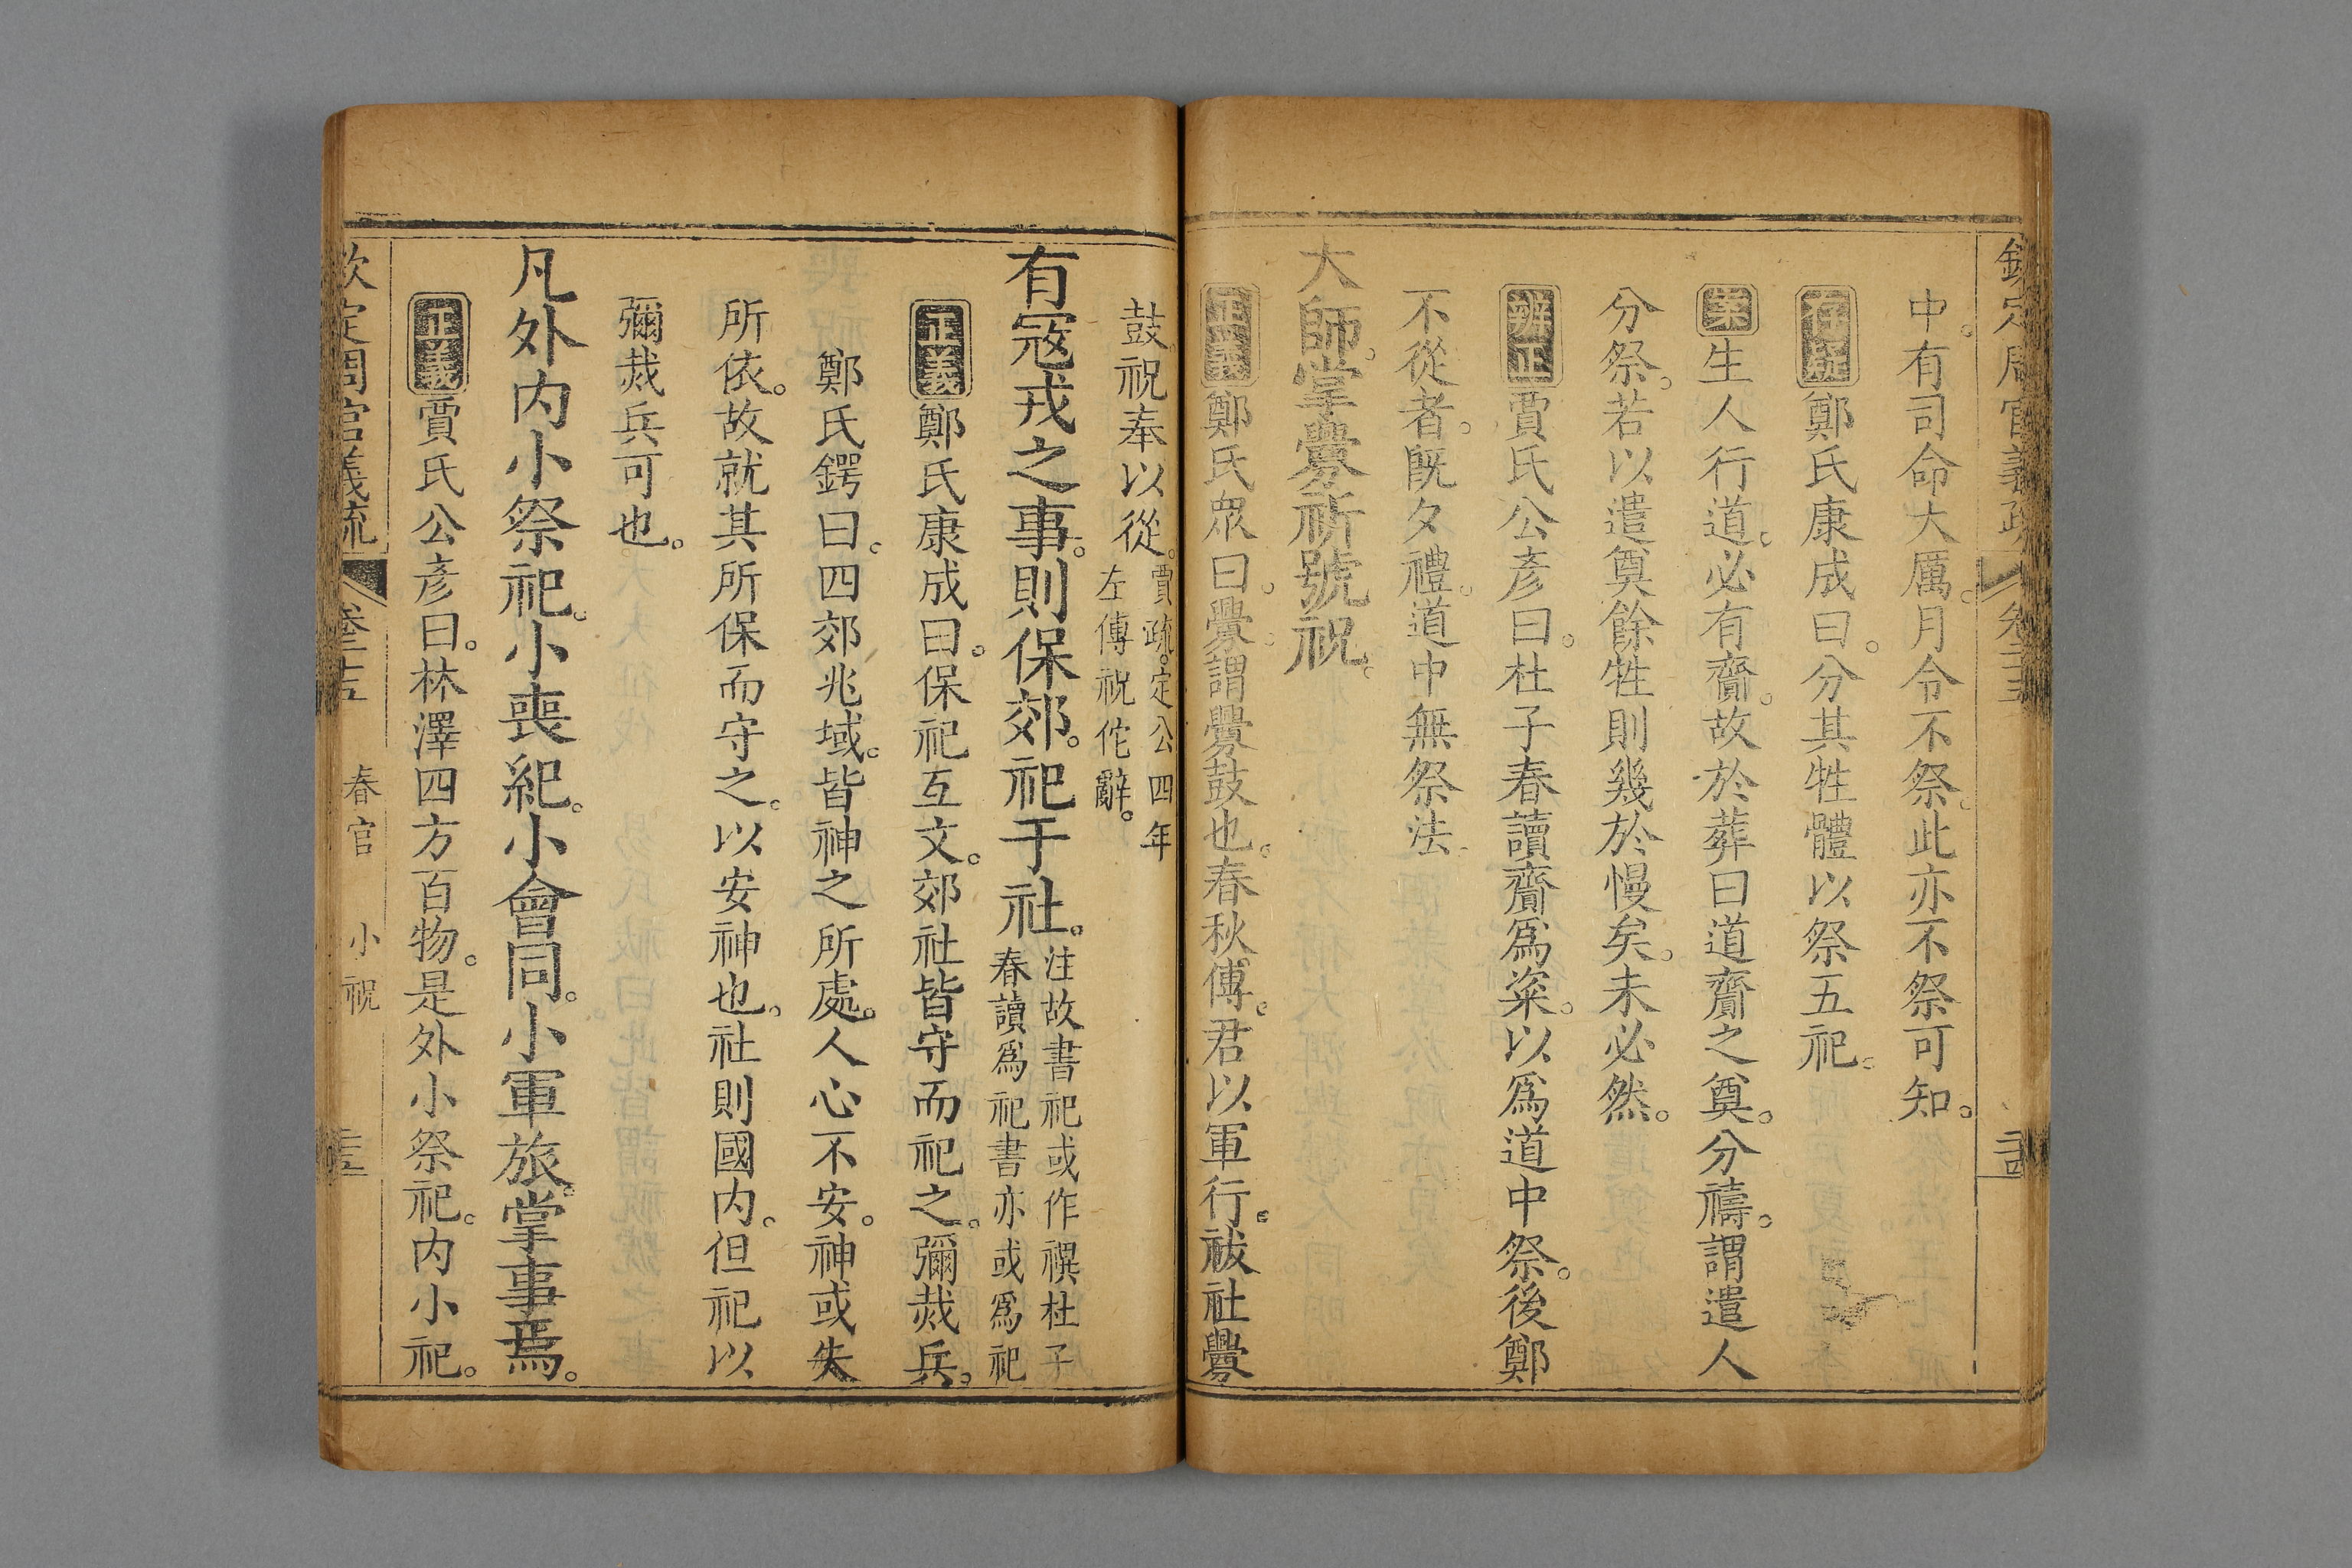 欽定周官義疏 卷二十五 二十四
中。有司命大厲。月令不祭。此亦不祭可知。
存疑 鄭氏康成曰。分其牲體以祭五祀。
案 生人行道。必有齎。故於葬曰道齎之奠。分禱。謂遣人
分祭。若以遣奠餘牲則幾於慢矣。未必然。
辨正 賈氏公彥曰。杜子春讀齎爲粢。以爲道中祭。後鄭
不從者。旣夕禮。道中無祭法。
大師。掌釁祈號祝。
正義 鄭氏眾曰。釁。謂釁鼓也。春秋傳。君以軍行。祓社釁
鼓祝奉以從。賈疏。定公四年
左傳祝佗辭。
有寇戎之事。則保郊。祀于社。注故書祀或作禩杜子
春讀爲祀書亦或爲祀
正義 鄭氏康成曰。保祀互文。郊社皆守而祀之。彌烖兵。
鄭氏鍔曰。四郊兆域。皆神之所處。人心不安。神或失
所依。故就其所保而守之。以安神也。社則國內。但祀以
彌烖兵可也。
凡外內小祭祀。小喪紀。小會同。小軍旅。掌事焉。
正義 賈氏公彥曰。林澤四方百物。是外小祭祀。內小祀。
欽定周官義疏 卷二十五 春官 小祝 二十五